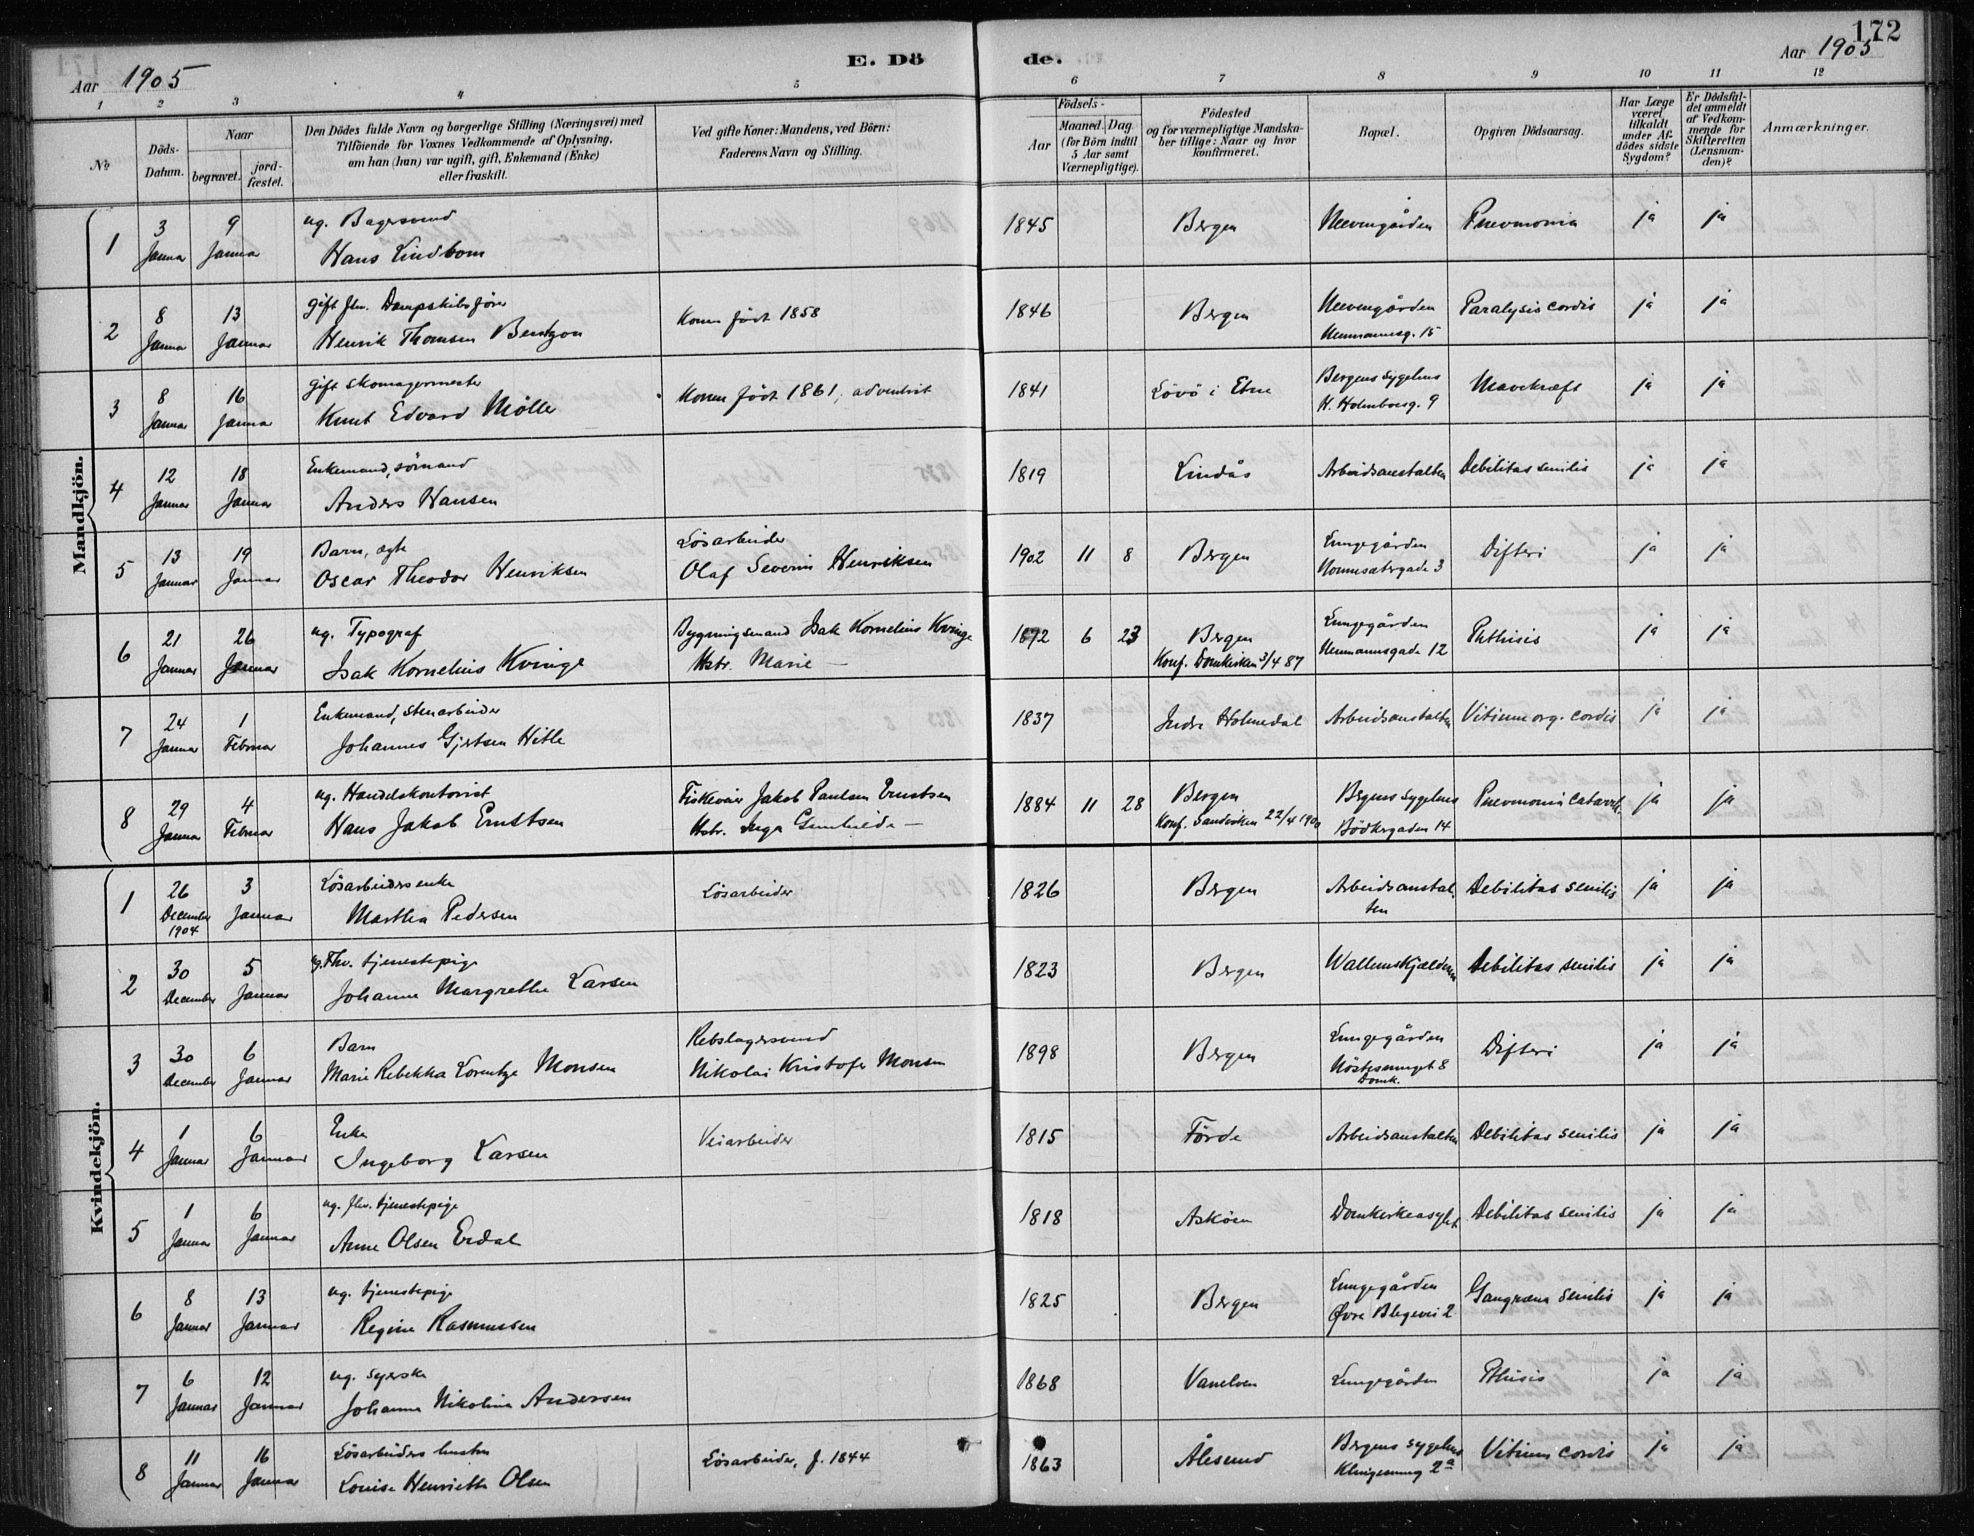 172
Aar 1905 E. Dö de. Aar 1905
1 2 3 4 5 6 7 8 9 10 11 12
No
Döds-Datum.
Naar begravet. jord-fæstet.
Den Dödes fulde Navn og borgerlige Stilling (Næringsvei) med Tilföiende for Voxnes Vedkommende af Oplysning, om han (hun) var ugift, gift, Enkemand (Enke) eller fraskilt.
Ved gifte Koner: Mandens, ved Börn: Faderens Navn og Stilling.
Födsels-
Aar Maaned. Dag. (for Börn indtil 5 Aar samt Værnepligtige).
Födested og for værnepligtige Mandskaber tillige: Naar og hvor konfirmeret.
Bopæl.
Opgiven Dödsaarsag.
Har Læge været tilkaldt under Afdödes sidste Sygdom?
Er Dödsfaldet anmeldt af Vedkommende for Skifteretten (Lensmanden)?
Anmærkninger.
Mandkjön.
1 3 Januar 9 Januar ug. Bagersvend
Hans Lindbom 1845 Bergen Neevengården Pneumonia ja ja
2 8 Januar 13 Januar gift fhv. Dampskibsfører
Henrik Thomsen Bentzon Konen født 1858 1846 Bergen Neevengården
Neumannsg. 15 Paralysis cordis ja ja
3 8 Januar 16 Januar gift skomagermester
Knut Edvard Møller Konen født 1861, adventist 1841 Lövö i Etne Bergens sygehus
H. Holmboesg. 9 Mavekræft ja ja
4 12 Januar 18 Januar Enkemand, sømand
Anders Hansen 1819 Lindås Arbeidsanstalten Debilitas senilis ja ja
5 13 Januar 19 Januar Barn, ægte
Oscar Theodor Henriksen Løsarbeider
Olaf Severin Henriksen 1902 11 8 Bergen Lungegården
Nonnesætergade 3 Difteri ja ja
6 21 Januar 26 Januar ug. Typograf
Isak Kornelius Kvinge Bygningsmand Isak Kornelius Kvinge
Hstr. Marie — 1872 6 23 Bergen
Konf. Domkirken 3/4 87 Lungegården
Neumannsgade 12 Phthisis ja ja
7 24 Januar 1 Februar Enkemand, stenarbeider
Johannes Gjertsen Hille 1837 Indre Holmedal Arbeidsanstalten Vitium org. cordis ja ja
8 29 Januar 4 Februar ug. Handelskontorist
Hans Jakob Erntsen Fiskeveier Jakob Paulsen Erntsen
Hstr. Inga Gunhilda — 1884 11 28 Bergen
Konf. Sandviken 22/4 1900 Bergens sygehus
Bødkergaden 14 Pneumonia catarrh. ja ja
Kvindekjön.
1 26 December 1904 3 Januar Løsarbeiders enke
Marthia Pedersen Løsarbeider 1826 Bergen Arbeidsanstalten Debilitas senilis ja ja
2 30 December 5 Januar ug. Fhv. tjenestepige
Johanne Margrethe Larsen 1823 Bergen Wallemskjælderen Debilitas senilis ja ja
3 30 December 6 Januar Barn
Marie Rebekka Lorentze Monsen Rebslagersvend
Nikolai Kristofer Monsen 1898 Bergen Lungegården
Nöstesmuget 8
Domk. Difteri ja ja
4 1 Januar 6 Januar Enke
Ingeborg Larsen Veiarbeider 1815 Förde Arbeidsanstalten Debilitas senilis ja ja
5 1 Januar 6 Januar ug. fhv. tjenestepige
Anne Olsen Erdal 1818 Askøen Domkirkeasylet Debilitas senilis ja ja
6 8 Januar 13 Januar ug. tjenestepige
Regine Rasmussen 1825 Bergen Lungegården
Øvre Blegevei 2 Gangræna senilis ja ja
7 6 Januar 12 Januar ug. syerske
Johanne Nikolina Andersen 1868 Vanelven Lungegården Pthisis ja ja
8 11 Januar 16 Januar Løsarbeiders hustru
Louise Henriette Olsen Løsarbeider, f. 1844 1863 Ålesund Bergens sygehus
Klingesmug 2a Vitium cordis ja ja